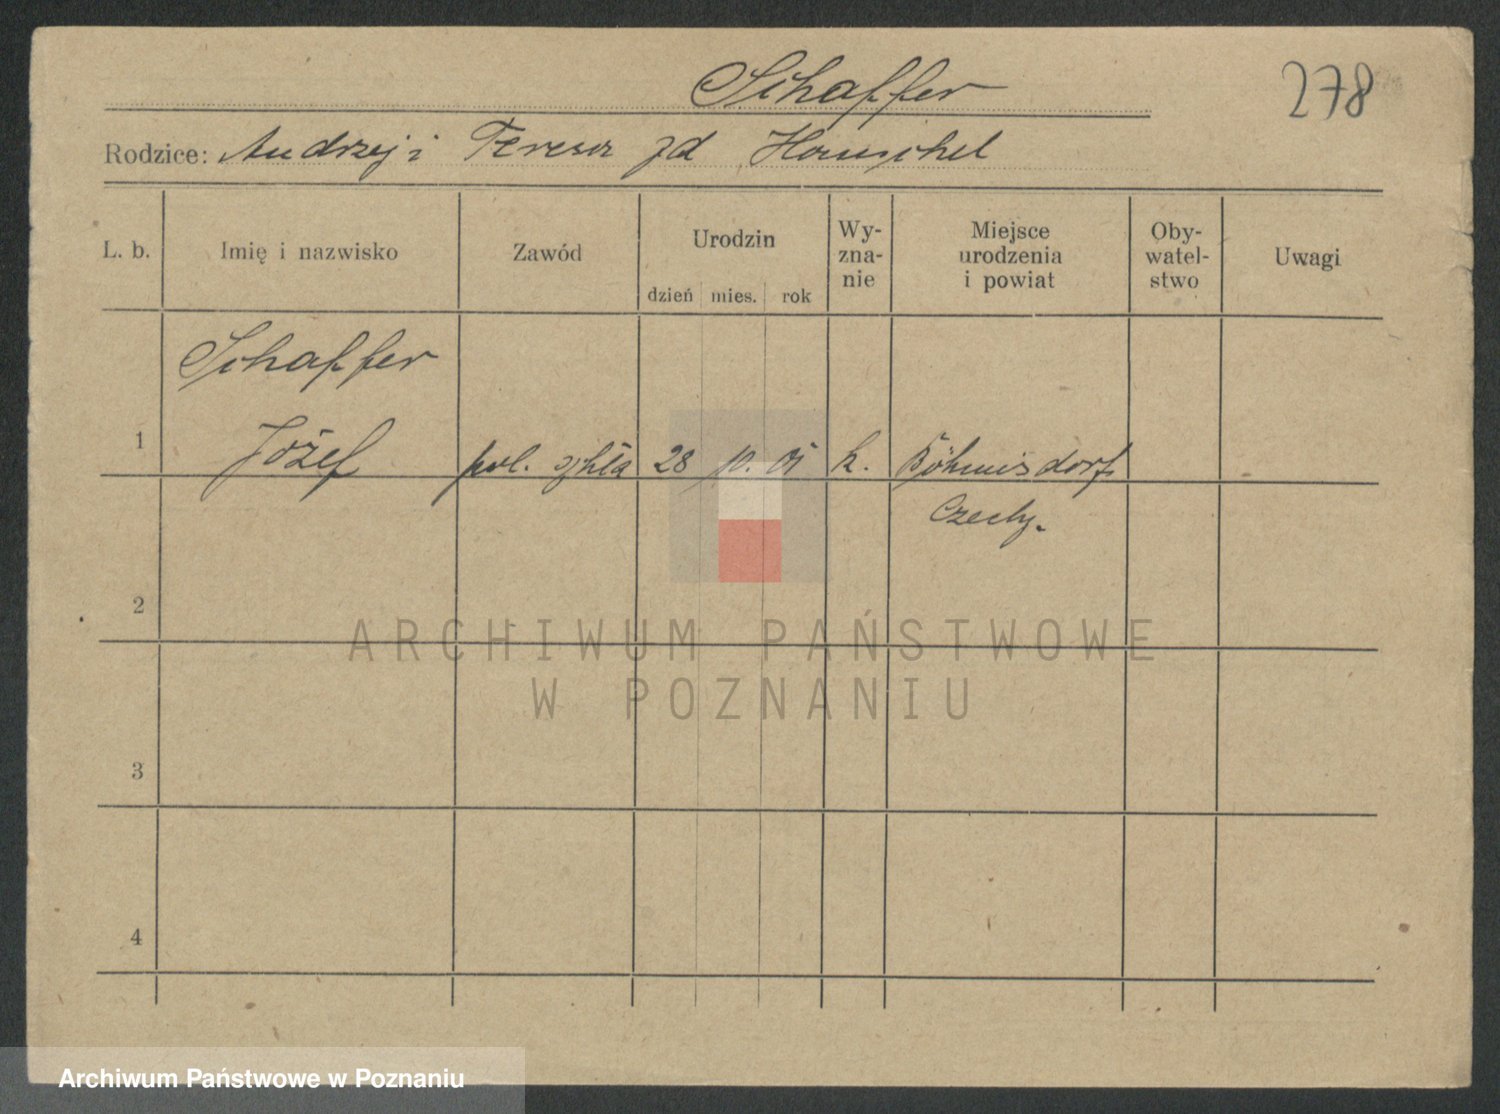 Schaffer
278
Rodzice: Andrzej i Teresa zd Hauschel
L. b. Imię i nazwisko Zawód Urodzin dzień mies. rok Wy-zna-nie Miejsce urodzenia i powiat Oby-watel-stwo Uwagi
Schaffer
1 Józef 28 10. 01 k. Böhmisdorf
Czechy.
2
ARCHIWUM PAŃSTWOWE
W POZNANIU
3
4
Archiwum Państwowe w Poznaniu